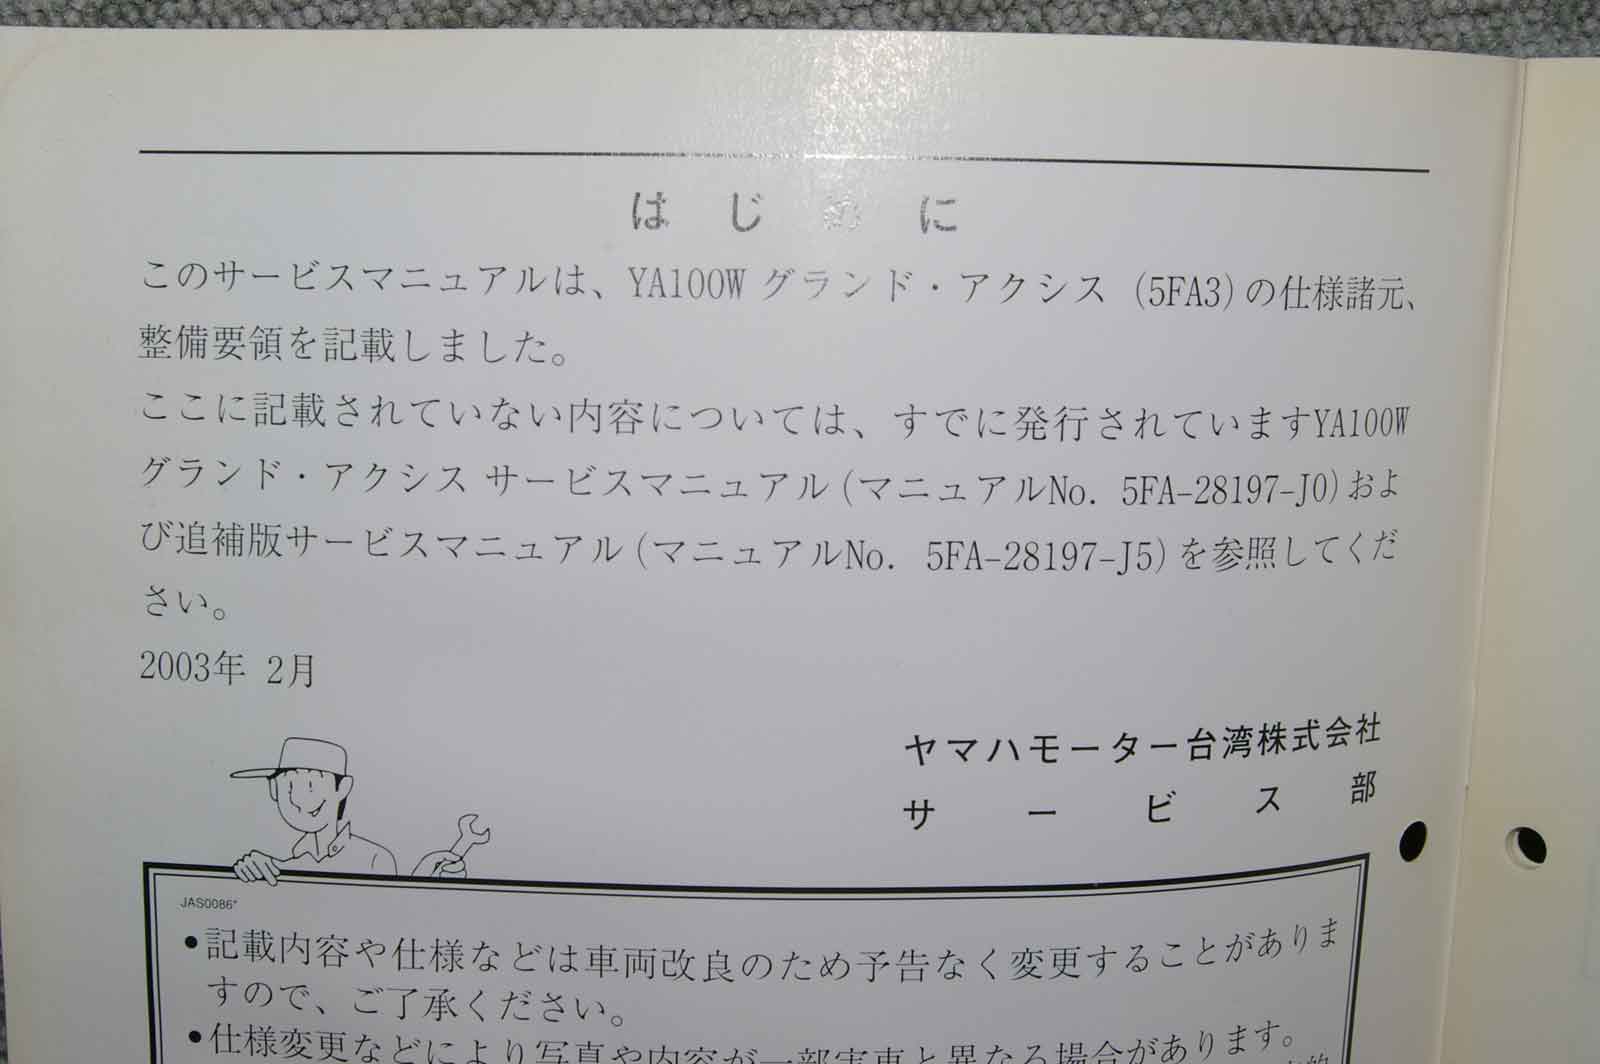 はじめに
このサービスマニュアルは、YA100W グランド・アクシス (5FA3)の仕様諸元、
整備要領を記載しました。
ここに記載されていない内容については、すでに発行されていますYA100W
グランド・アクシス サービスマニュアル(マニュアルNo. 5FA-28197-J0)およ
び追補版サービスマニュアル(マニュアルNo. 5FA-28197-J5)を参照してくだ
さい。
2003年 2月
ヤマハモーター台湾株式会社
サービス部
JAS0086*
●記載内容や仕様などは車両改良のため予告なく変更することがありま
すので、ご了承ください。
●仕様変更などにより写真や内容が一部実車と異なる場合があります。